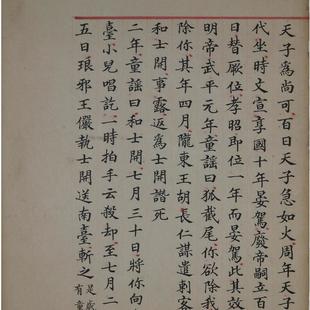 天子爲尚可百日天子急如火周年天子
代坐時文宣享國十年晏駕廢帝嗣立百
日替厥位孝昭即位一年而晏駕此其效
明帝武平元年童謡曰狐截尾你欲除我
除你其年四月隴東王胡長仁謀遣刺客
和士開事露返爲士開譖死
二年童謡曰和士開七月三十日將你向
臺小兒唱訖一時拍手云殺却至七月二
五日琅邪王儼執士開送南臺斬之是歲
有童